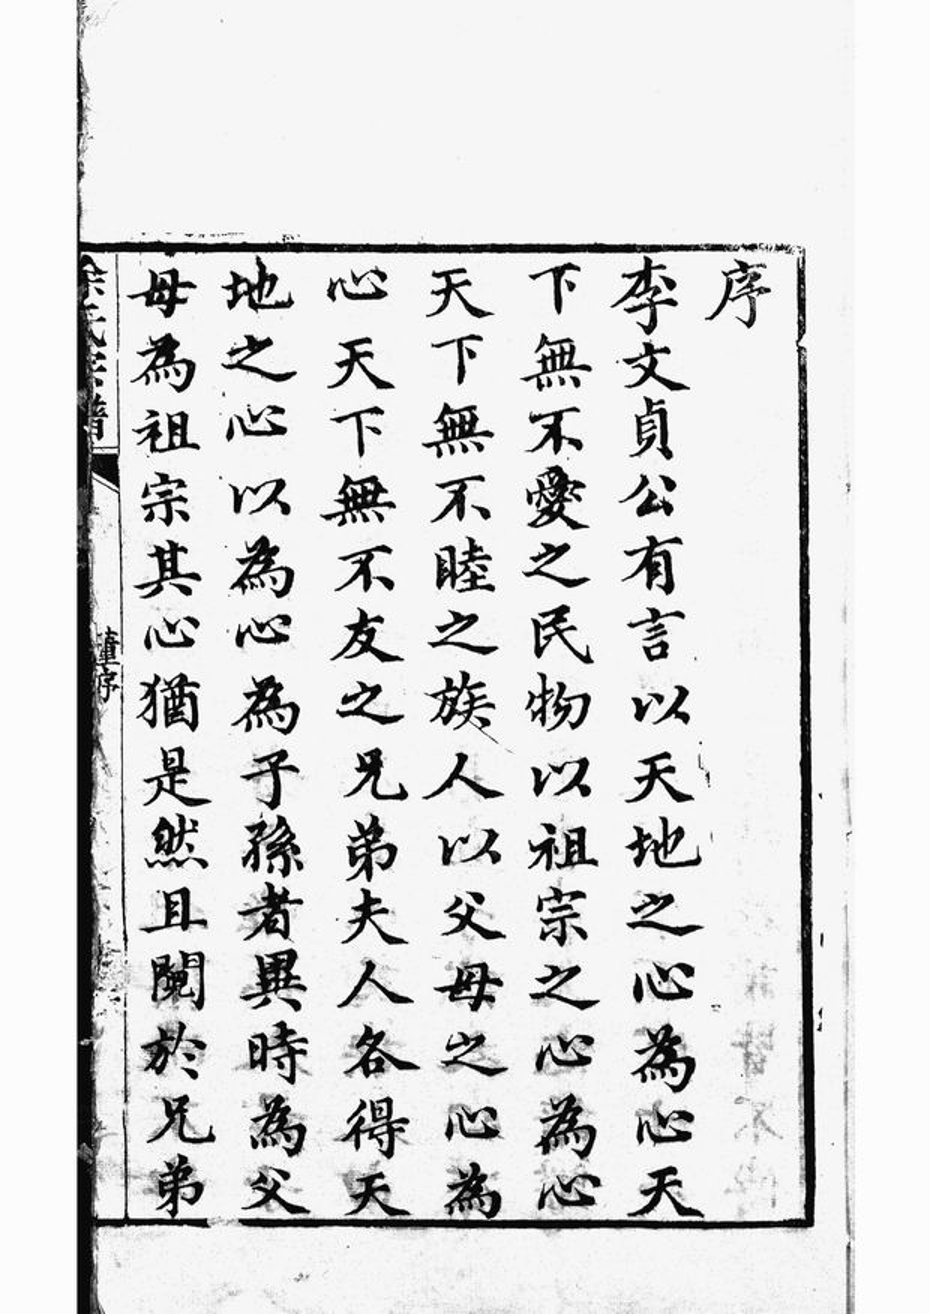 序
李文貞公有言以天地之心為心天
下無不愛之民物以祖宗之心為心
天下無不睦之族人以父母之心為
心天下無不友之兄弟夫人各得天
地之心以為心為子孫者異時為父
母為祖宗其心猶是然且鬩於兄弟
氏宗譜
董序